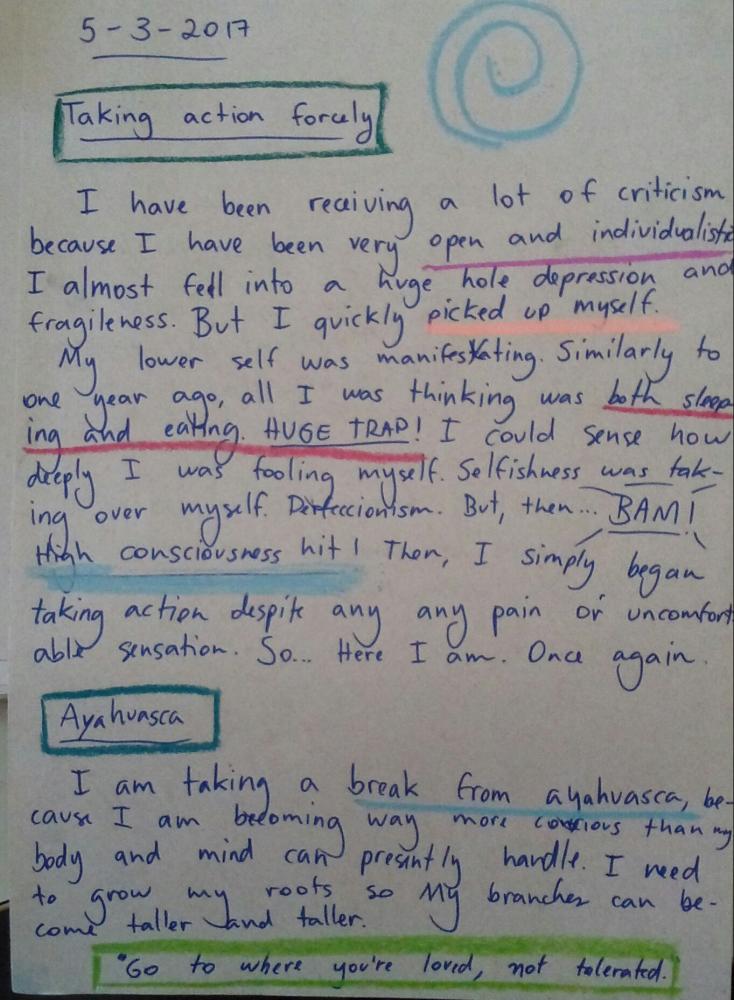 5-3-2017
Taking action forcely
I have been receiving a lot of criticism
because I have been very open and individualistic
I almost fell into a huge hole depression and
fragileness. But I quickly picked up myself.
My lower self was manifestating. Similarly to
one year ago, all I was thinking was both sleep
ing and eating. HUGE TRAP! I could sense how
deeply I was fooling myself. Selfishness was tak-
ing over myself. Perfeccionism. But, then... BAM!
High consciousness hit! Then, I simply began
taking action despite any any pain or uncomfort
able sensation. So... Here I am. Once again.
Ayahuasca
I am taking a break from ayahuasca, be-
cause I am becoming way more concious than my
body and mind can presintly handle. I need
to grow my roots so My branches can be-
come taller and taller.
"Go to where you're loved, not tolerated.